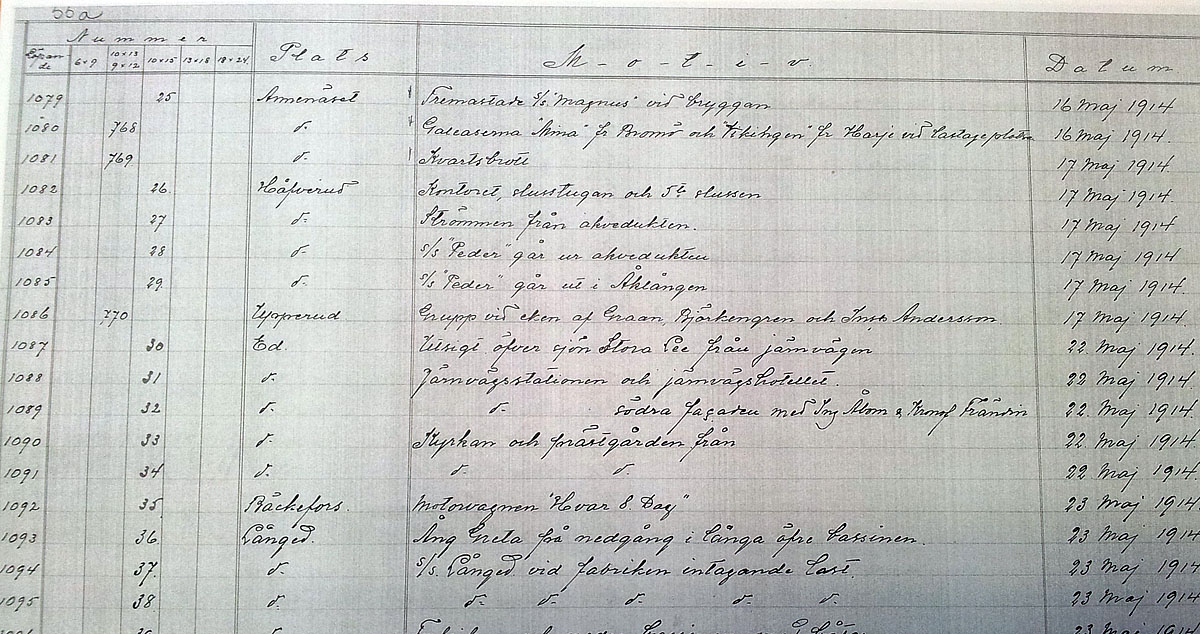 55a
Nummer
Löpande 6×9 10×13 9×12 10×15 13×18 18×24 Plats Motiv. Datum.
1079 25 Åmenäset Tremastade s/s "Magnus" vid bryggan 16 Maj 1914.
1080 768 d:o Galeaserna "Nina" fr Bromö och "Vikingen" fr Harje vid lastageplatsen 16 Maj 1914.
1081 769 d:o Kvartsbrott 17 Maj 1914.
1082 26. Håfverud Kontoret, slusstugan och 5te slussen 17 Maj 1914.
1083 27 d:o Strömmen från akvedukten. 17 Maj 1914
1084 28 d:o s/s "Peder" går ur akvedukten 17 Maj 1914
1085 29. d:o s/s "Peder" går ut i Åklången 17 Maj 1914.
1086 770 Upperud Grupp vid eken af Graan, Björkengren och Andersson. 17 Maj 1914.
1087 30 Ed. Utsigt öfver sjön Stora Lee från järnvägen 22 Maj 1914.
1088 31 d:o Järnvägsstationen och järnvägshotellet. 22 Maj 1914.
1089 32 d:o d:o södra façaden med Ing Åbom & Frändin 22 Maj 1914.
1090 33 d:o Kyrkan och prästgården från 22 Maj 1914.
1091 34 d:o d:o d:o 22 Maj 1914
1092 35 Bäckefors. Motorvagnen "Hvar 8. Dag" 23 Maj 1914
1093 36. Långed. Ång Greta på nedgång i långa öfre bassinen. 23 Maj 1914
1094 37. d:o s/s. Långed vid fabriken intagande last. 23 Maj 1914
1095 38 d:o d:o d:o d:o d:o d:o 23 Maj 1914